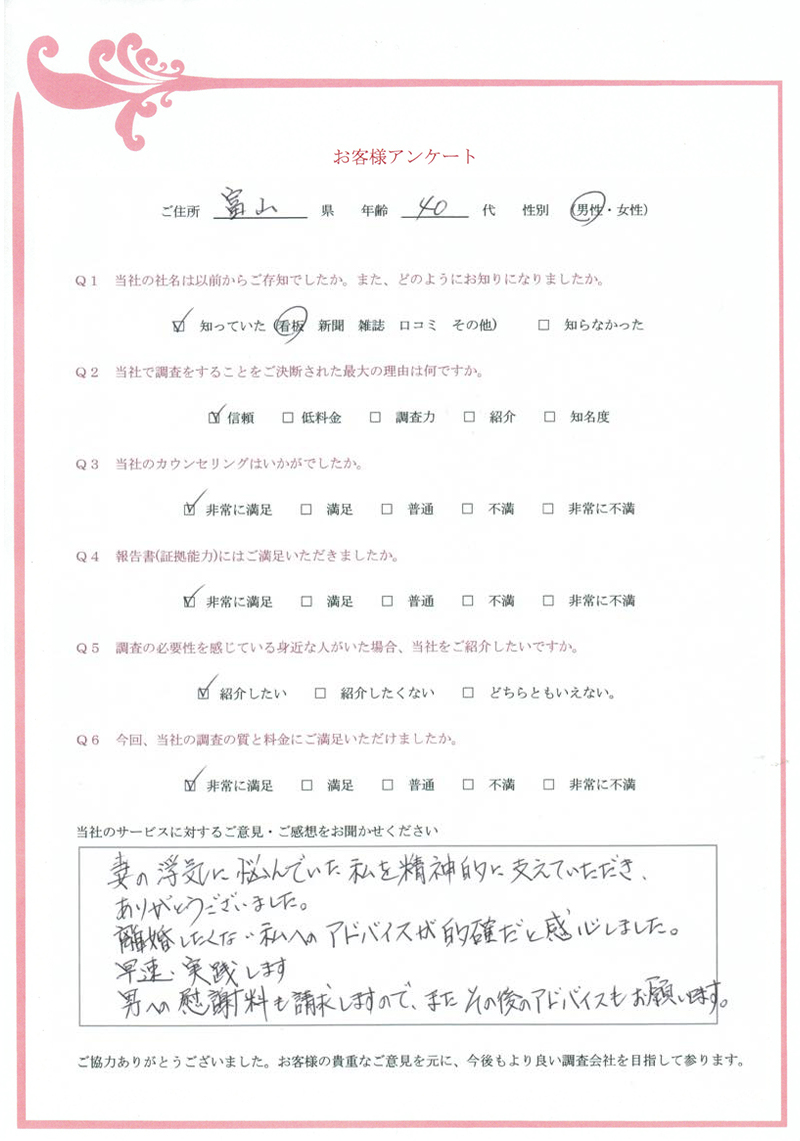 お客様アンケート
ご住所 富山 県 年齢 40 代 性別 (男性・女性)
Q1 当社の社名は以前からご存知でしたか。また、どのようにお知りになりましたか。
☑ 知っていた (看板 新聞 雑誌 口コミ その他) □ 知らなかった
Q2 当社で調査をすることをご決断された最大の理由は何ですか。
☑ 信頼 □ 低料金 □ 調査力 □ 紹介 □ 知名度
Q3 当社のカウンセリングはいかがでしたか。
☑ 非常に満足 □ 満足 □ 普通 □ 不満 □ 非常に不満
Q4 報告書(証拠能力)にはご満足いただきましたか。
☑ 非常に満足 □ 満足 □ 普通 □ 不満 □ 非常に不満
Q5 調査の必要性を感じている身近な人がいた場合、当社をご紹介したいですか。
☑ 紹介したい □ 紹介したくない □ どちらともいえない。
Q6 今回、当社の調査の質と料金にご満足いただけましたか。
☑ 非常に満足 □ 満足 □ 普通 □ 不満 □ 非常に不満
当社のサービスに対するご意見・ご感想をお聞かせください
妻の浮気に悩んでいた私を精神的に支えていただき、
ありがとうございました。
離婚したくない私へのアドバイスが的確だと感心しました。
早速、実践します
男への慰謝料も請求しますので、またその後のアドバイスもお願いします。
ご協力ありがとうございました。お客様の貴重なご意見を元に、今後もより良い調査会社を目指して参ります。